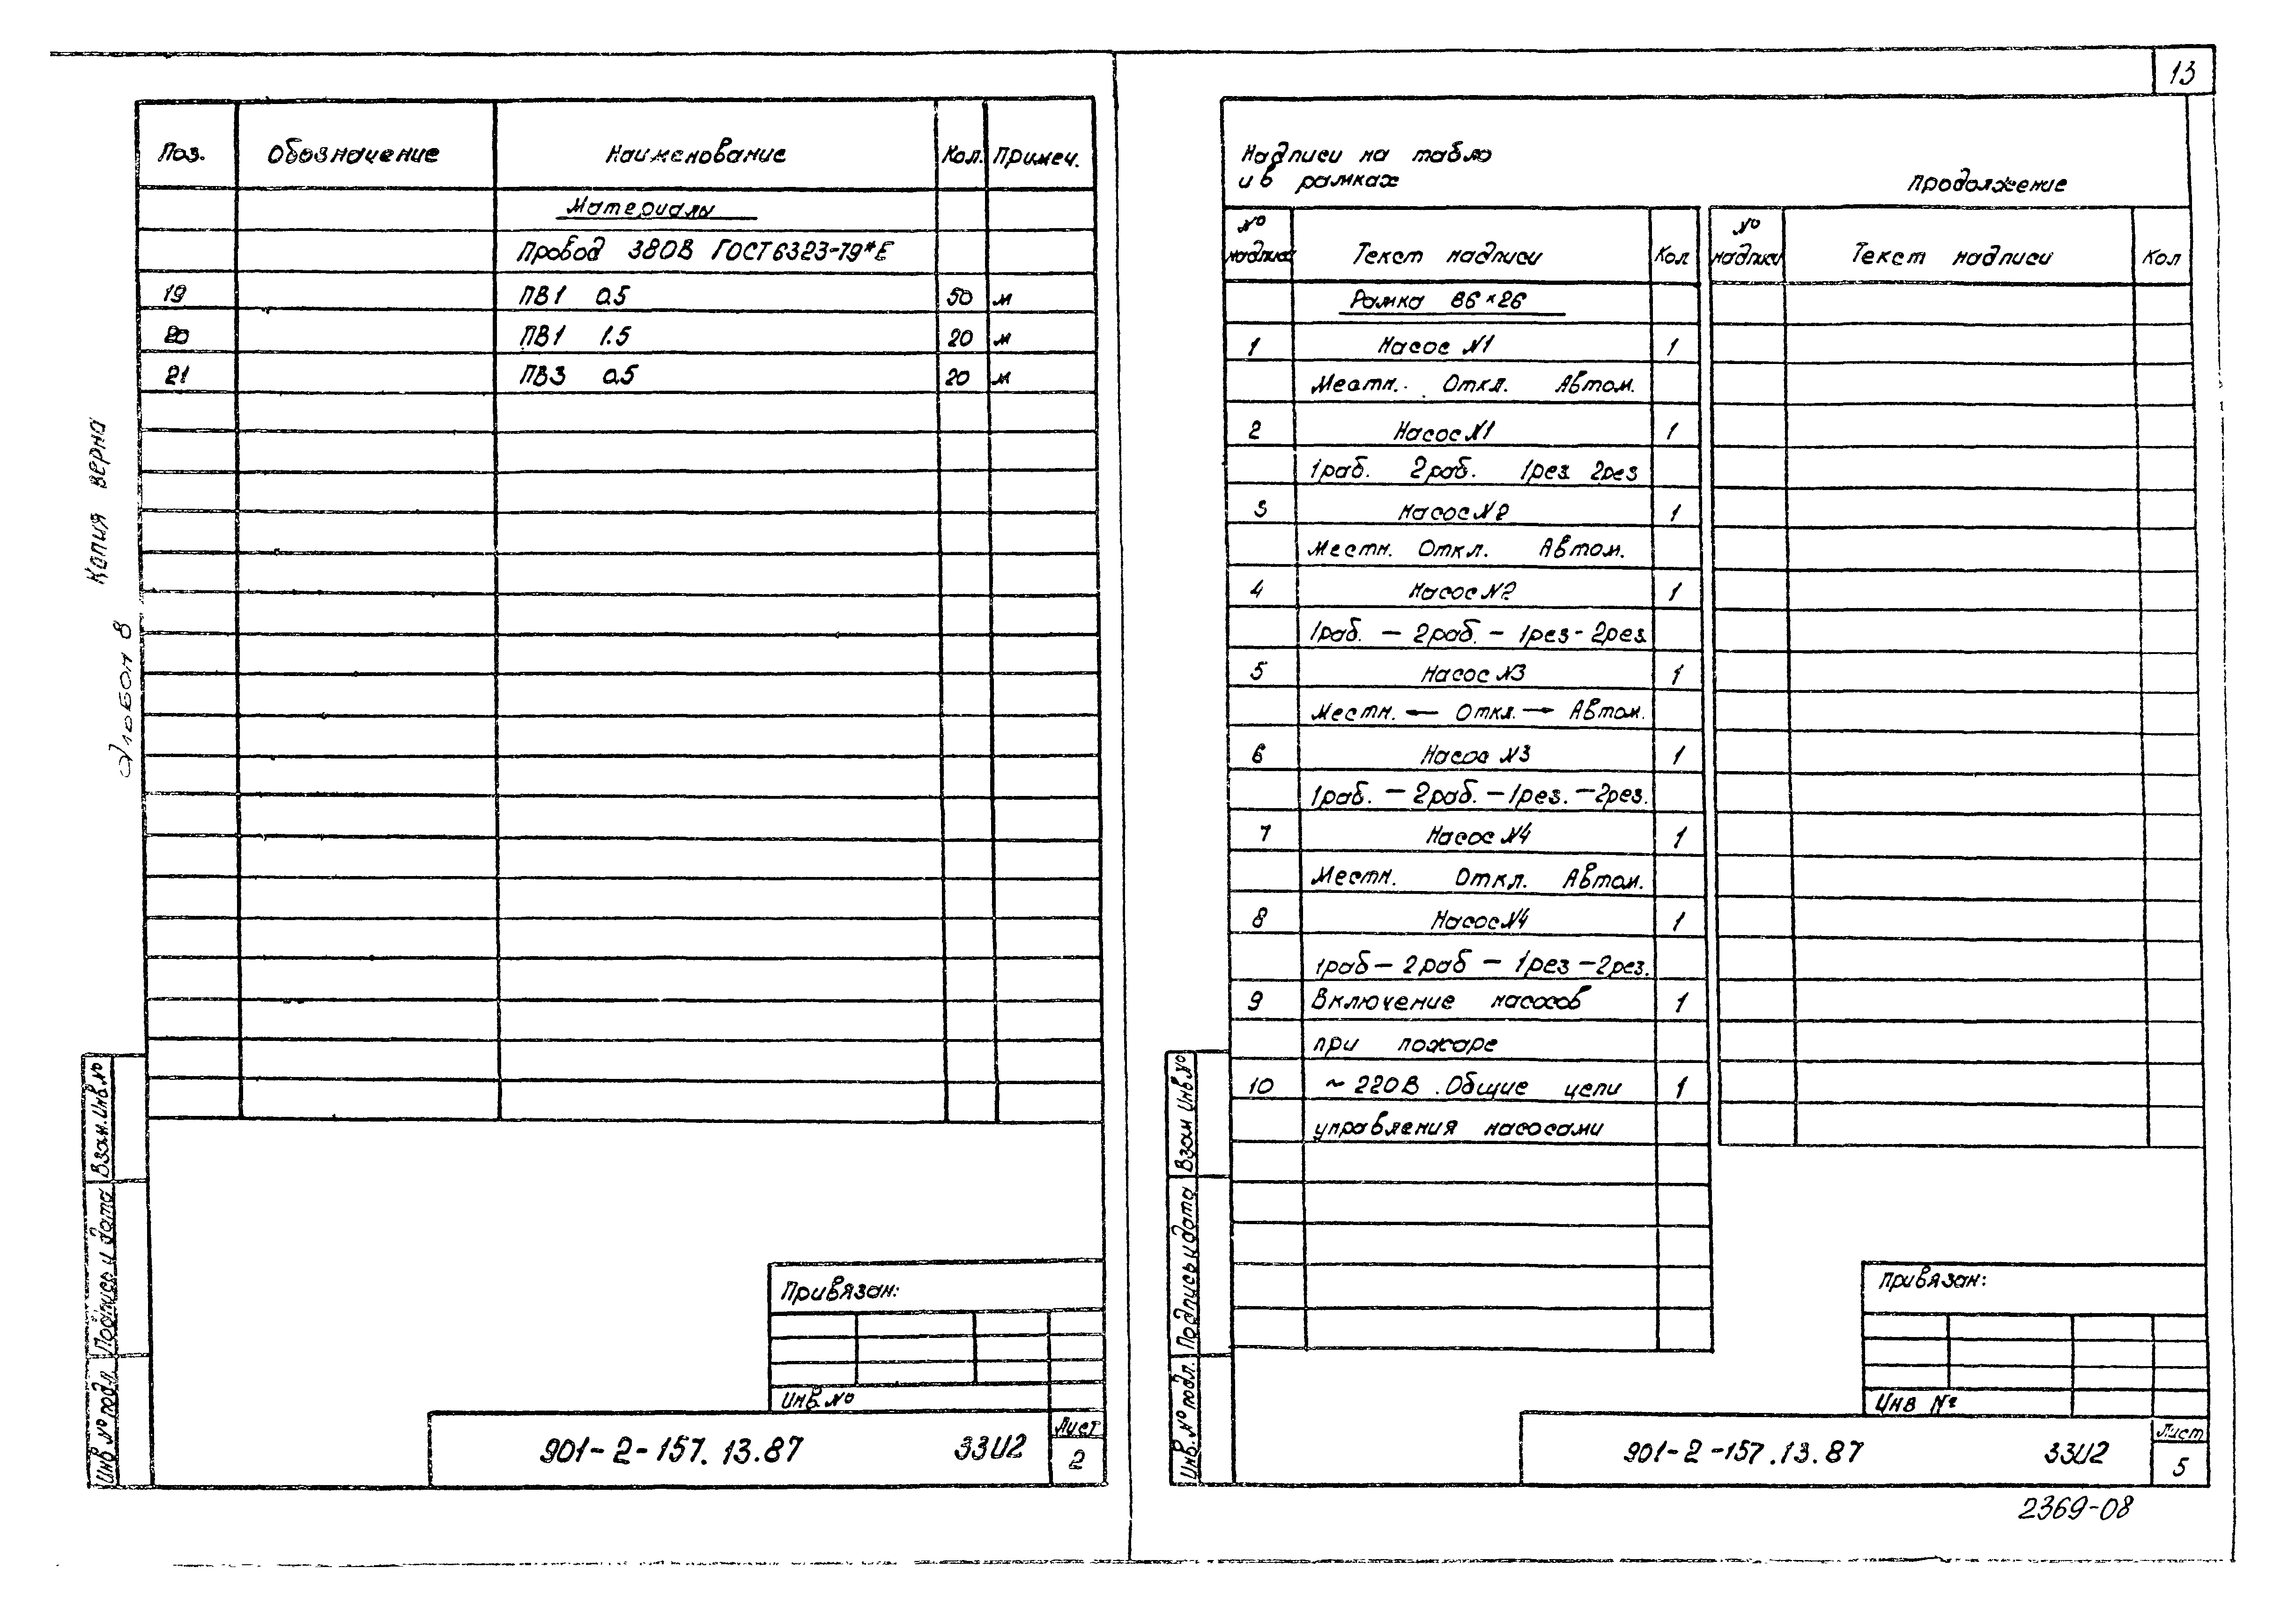 13
Поз. Обозначение Наименование Кол. Примеч.
Материалы
Провод 380В ГОСТ6323-79*Е
19 ПВ1 0.5 50 м
20 ПВ1 1.5 20 м
21 ПВ3 0.5 20 м
Копия верна
Альбом 8
Взам. Инв.№
Подпись и дата
Инв.№ подл.
Привязан:
Инв.№
901-2-157.13.87 ЭЗИ2
Лист
2
Надписи на табло
и в рамках
Продолжение
№ надписи Текст надписи Кол
№ надписи Текст надписи Кол
Рамка 86×26
1 Насос №1 1
Местн. Откл. Автом.
2 Насос №1 1
1раб. 2раб. 1рез 2рез
3 Насос №2 1
Местн. Откл. Автом.
4 Насос №2 1
1раб. – 2раб. – 1рез - 2рез.
5 Насос №3 1
Местн. ← Откл. → Автом.
6 Насос №3 1
1раб. – 2раб. – 1рез. – 2рез.
7 Насос №4 1
Местн. Откл. Автом.
8 Насос №4 1
1раб – 2раб – 1рез – 2рез.
9 Включение насосов 1
при пожаре
10 ~ 220В. Общие цепи 1
управления насосами
Взам Инв.№
Подпись и дата
Инв.№ подл.
Привязан:
Инв №
901-2-157.13.87 ЭЗИ2
Лист
5
2369-08